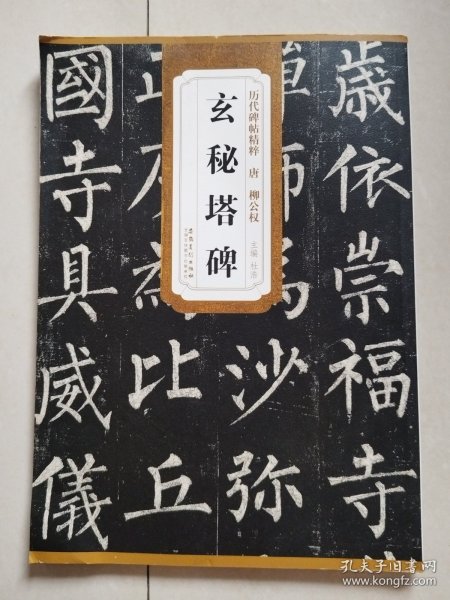 歲依崇福寺
師為沙弥
比丘
國寺具威儀
历代碑帖精粹 唐 柳公权
主编 杜浩
玄秘塔碑
安徽美术出版社
孔夫子旧书网
www.kongfz.com